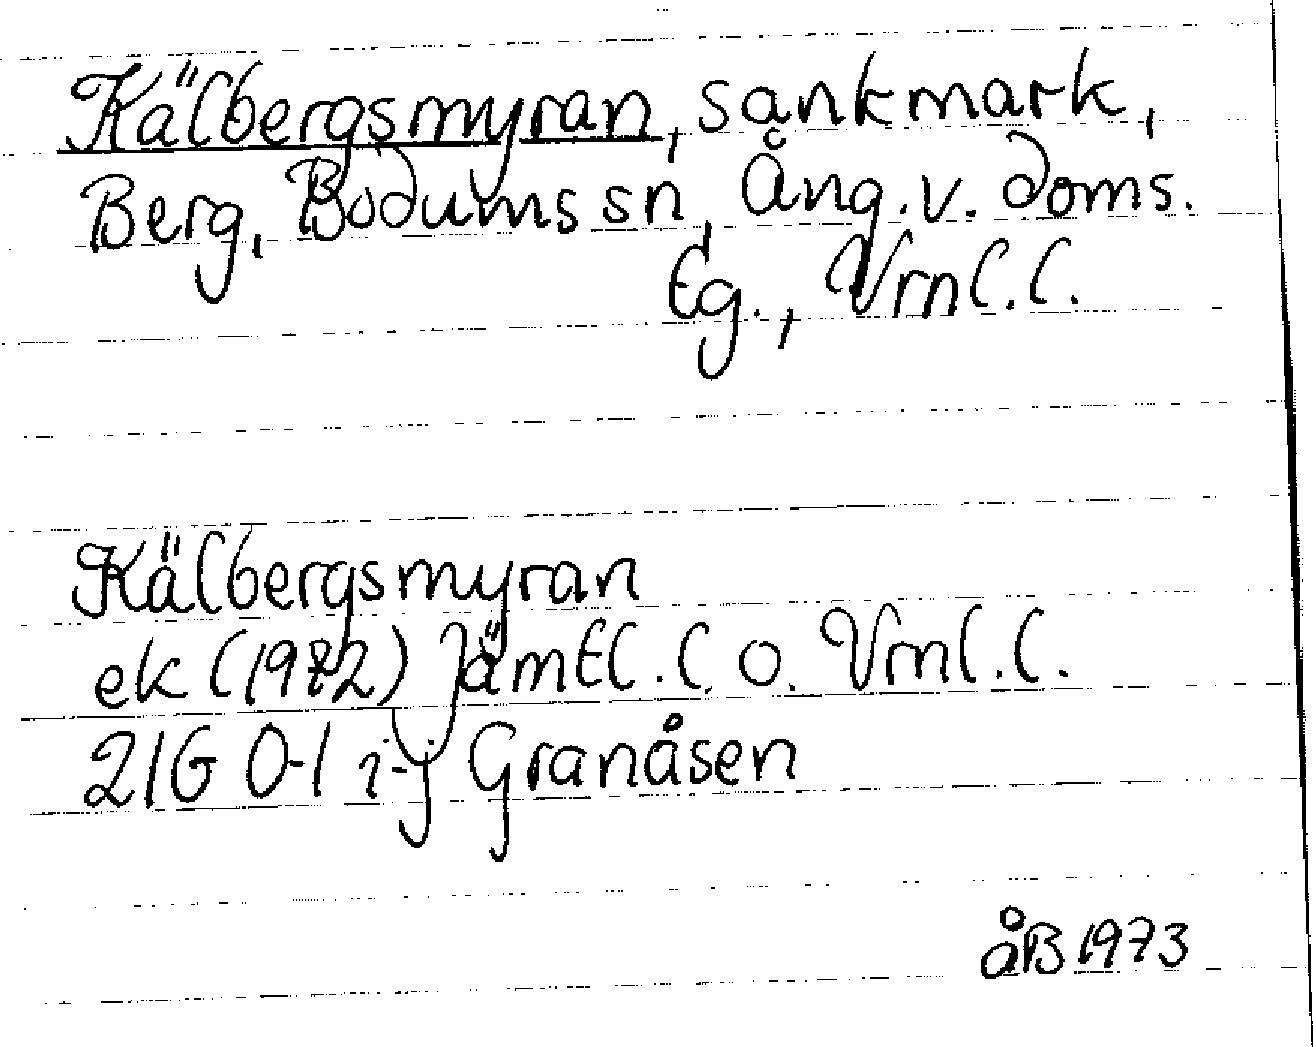 Kälbergsmyran, sankmark,
Berg, Bodums sn, Ång. v. doms.
tg., Vrnl.l.
Kälbergsmyran
ek (1972) Jämtl.l. o. Vrnl.l.
21G 0-1 i-j Granåsen
åB 1973